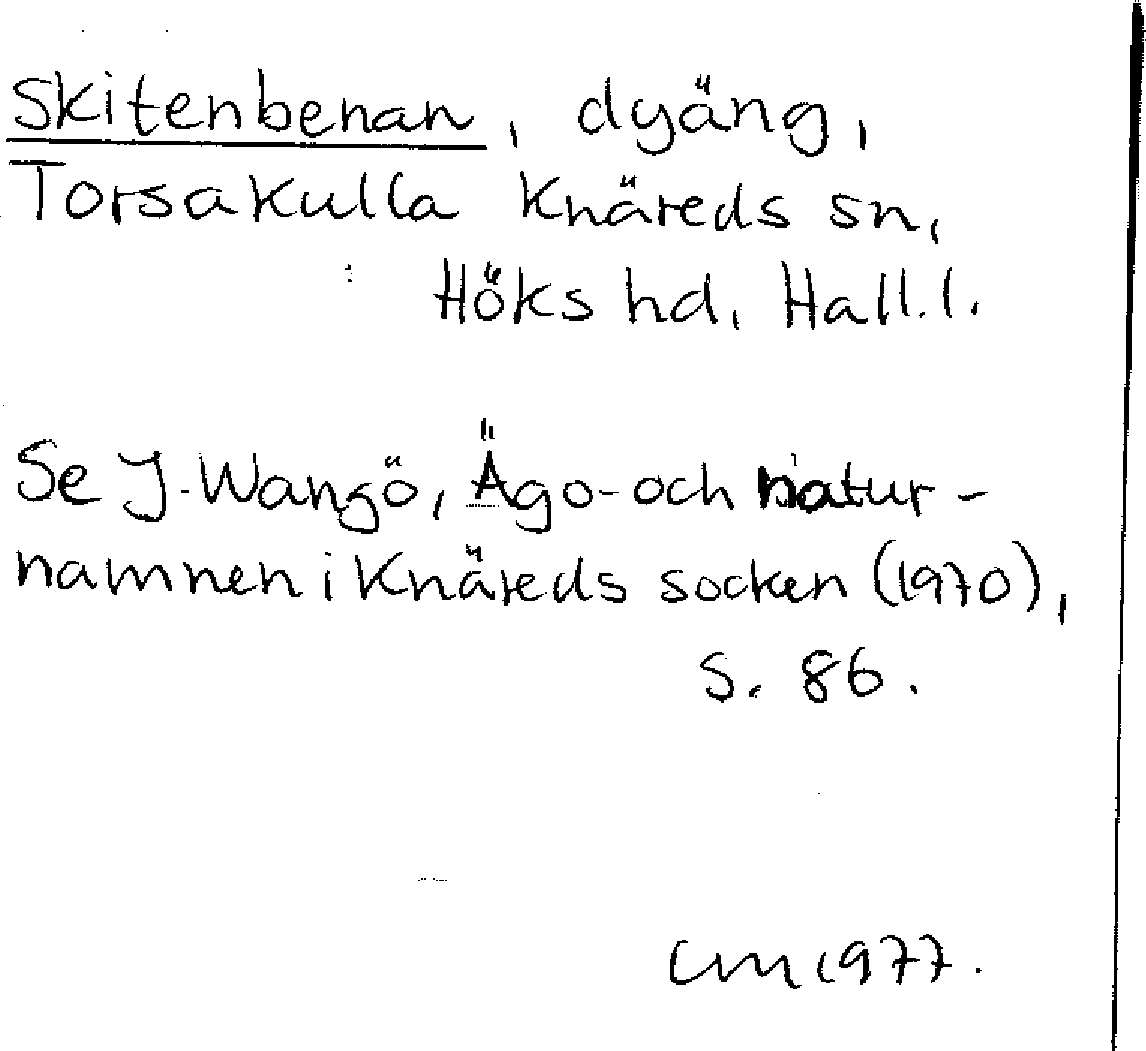 Skitenbenan, dyäng,
Torsakulla Knäreds sn,
Höks hd, Hall.l.
Se J. Wangö, Ägo- och natur-
namnen i Knäreds socken (1970),
s. 86.
CM 1977.